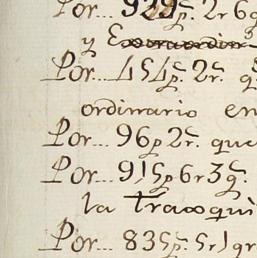 Por... 929p. 2r 6g
y Extraordin
Por... 454p. 2r. g
ordinrario en
Por... 96p 2r. que
Por... 915p 6r 3g.
la Tracoqui
Por... 835p. 5r 1gr